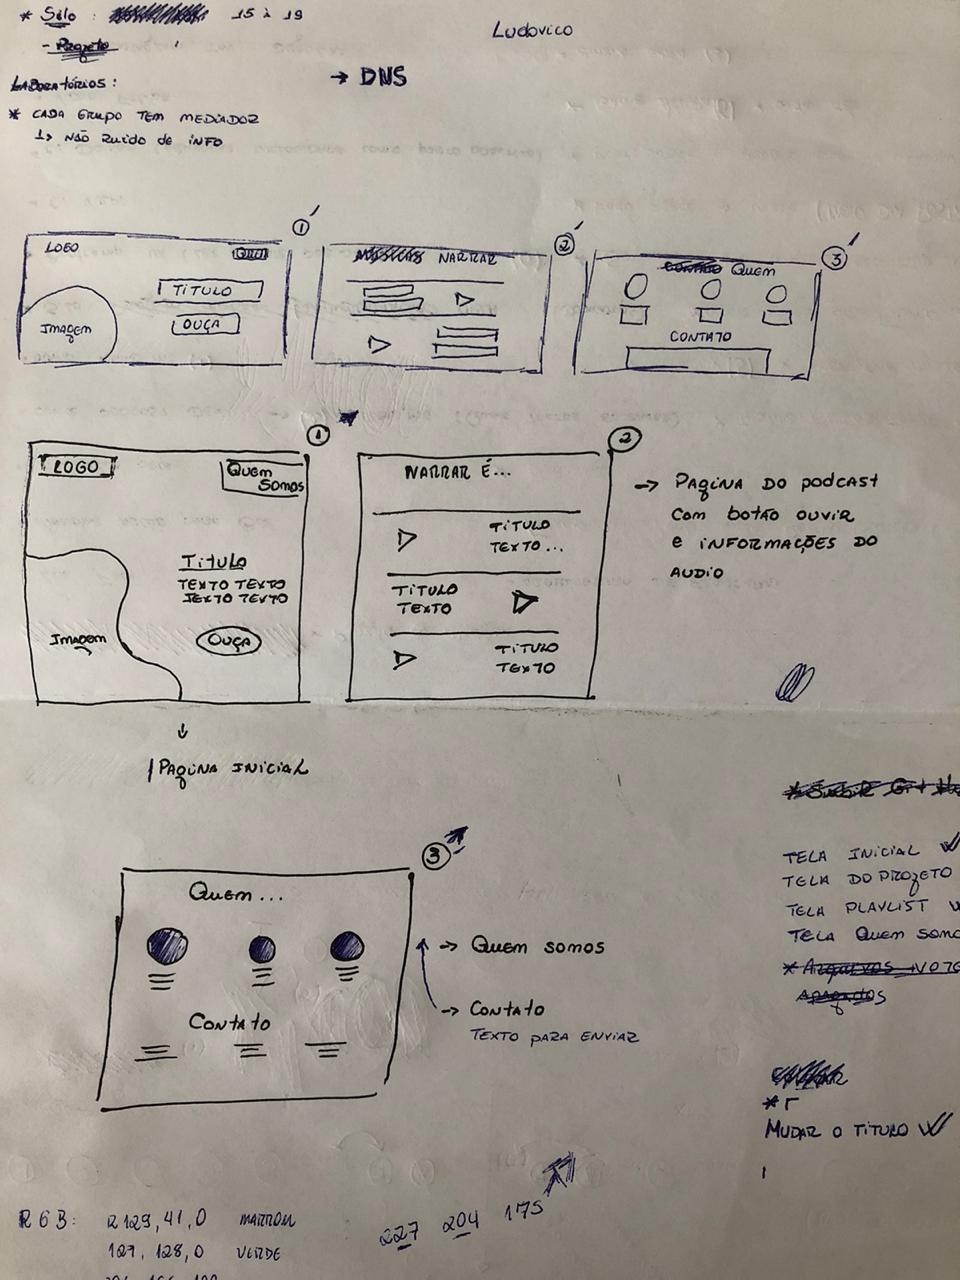 * Silo : 15 à 19
- Projeto
Ludovico
LABORATÓRIOS :
→ DNS
* CADA GRUPO TEM MEDIADOR
↳ NÃO RUIDO DE INFO
1
LOGO
TITULO
OUÇA
IMAGEM
2
NARRAR
3
QUEM
CONTATO
1
LOGO
QUEM
SOMOS
TITULO
TEXTO TEXTO
TEXTO TEXTO
IMAGEM
OUÇA
↓
PAGINA INICIAL
2
NARRAR É...
TITULO
TEXTO...
TITULO
TEXTO
TITULO
TEXTO
→ PAGINA DO PODCAST
COM BOTÃO OUVIR
E INFORMAÇÕES DO
AUDIO
3
QUEM...
CONTATO
→ QUEM SOMOS
→ CONTATO
TEXTO PARA ENVIAR
TELA INICIAL
TELA DO PROJETO
TELA PLAYLIST
TELA QUEM SOMO
* ARQUIVOS
APAGADOS
MUDAR O TITULO
RGB: R 129, 41, 0 MARROM
127, 128, 0 VERDE
227 204 175